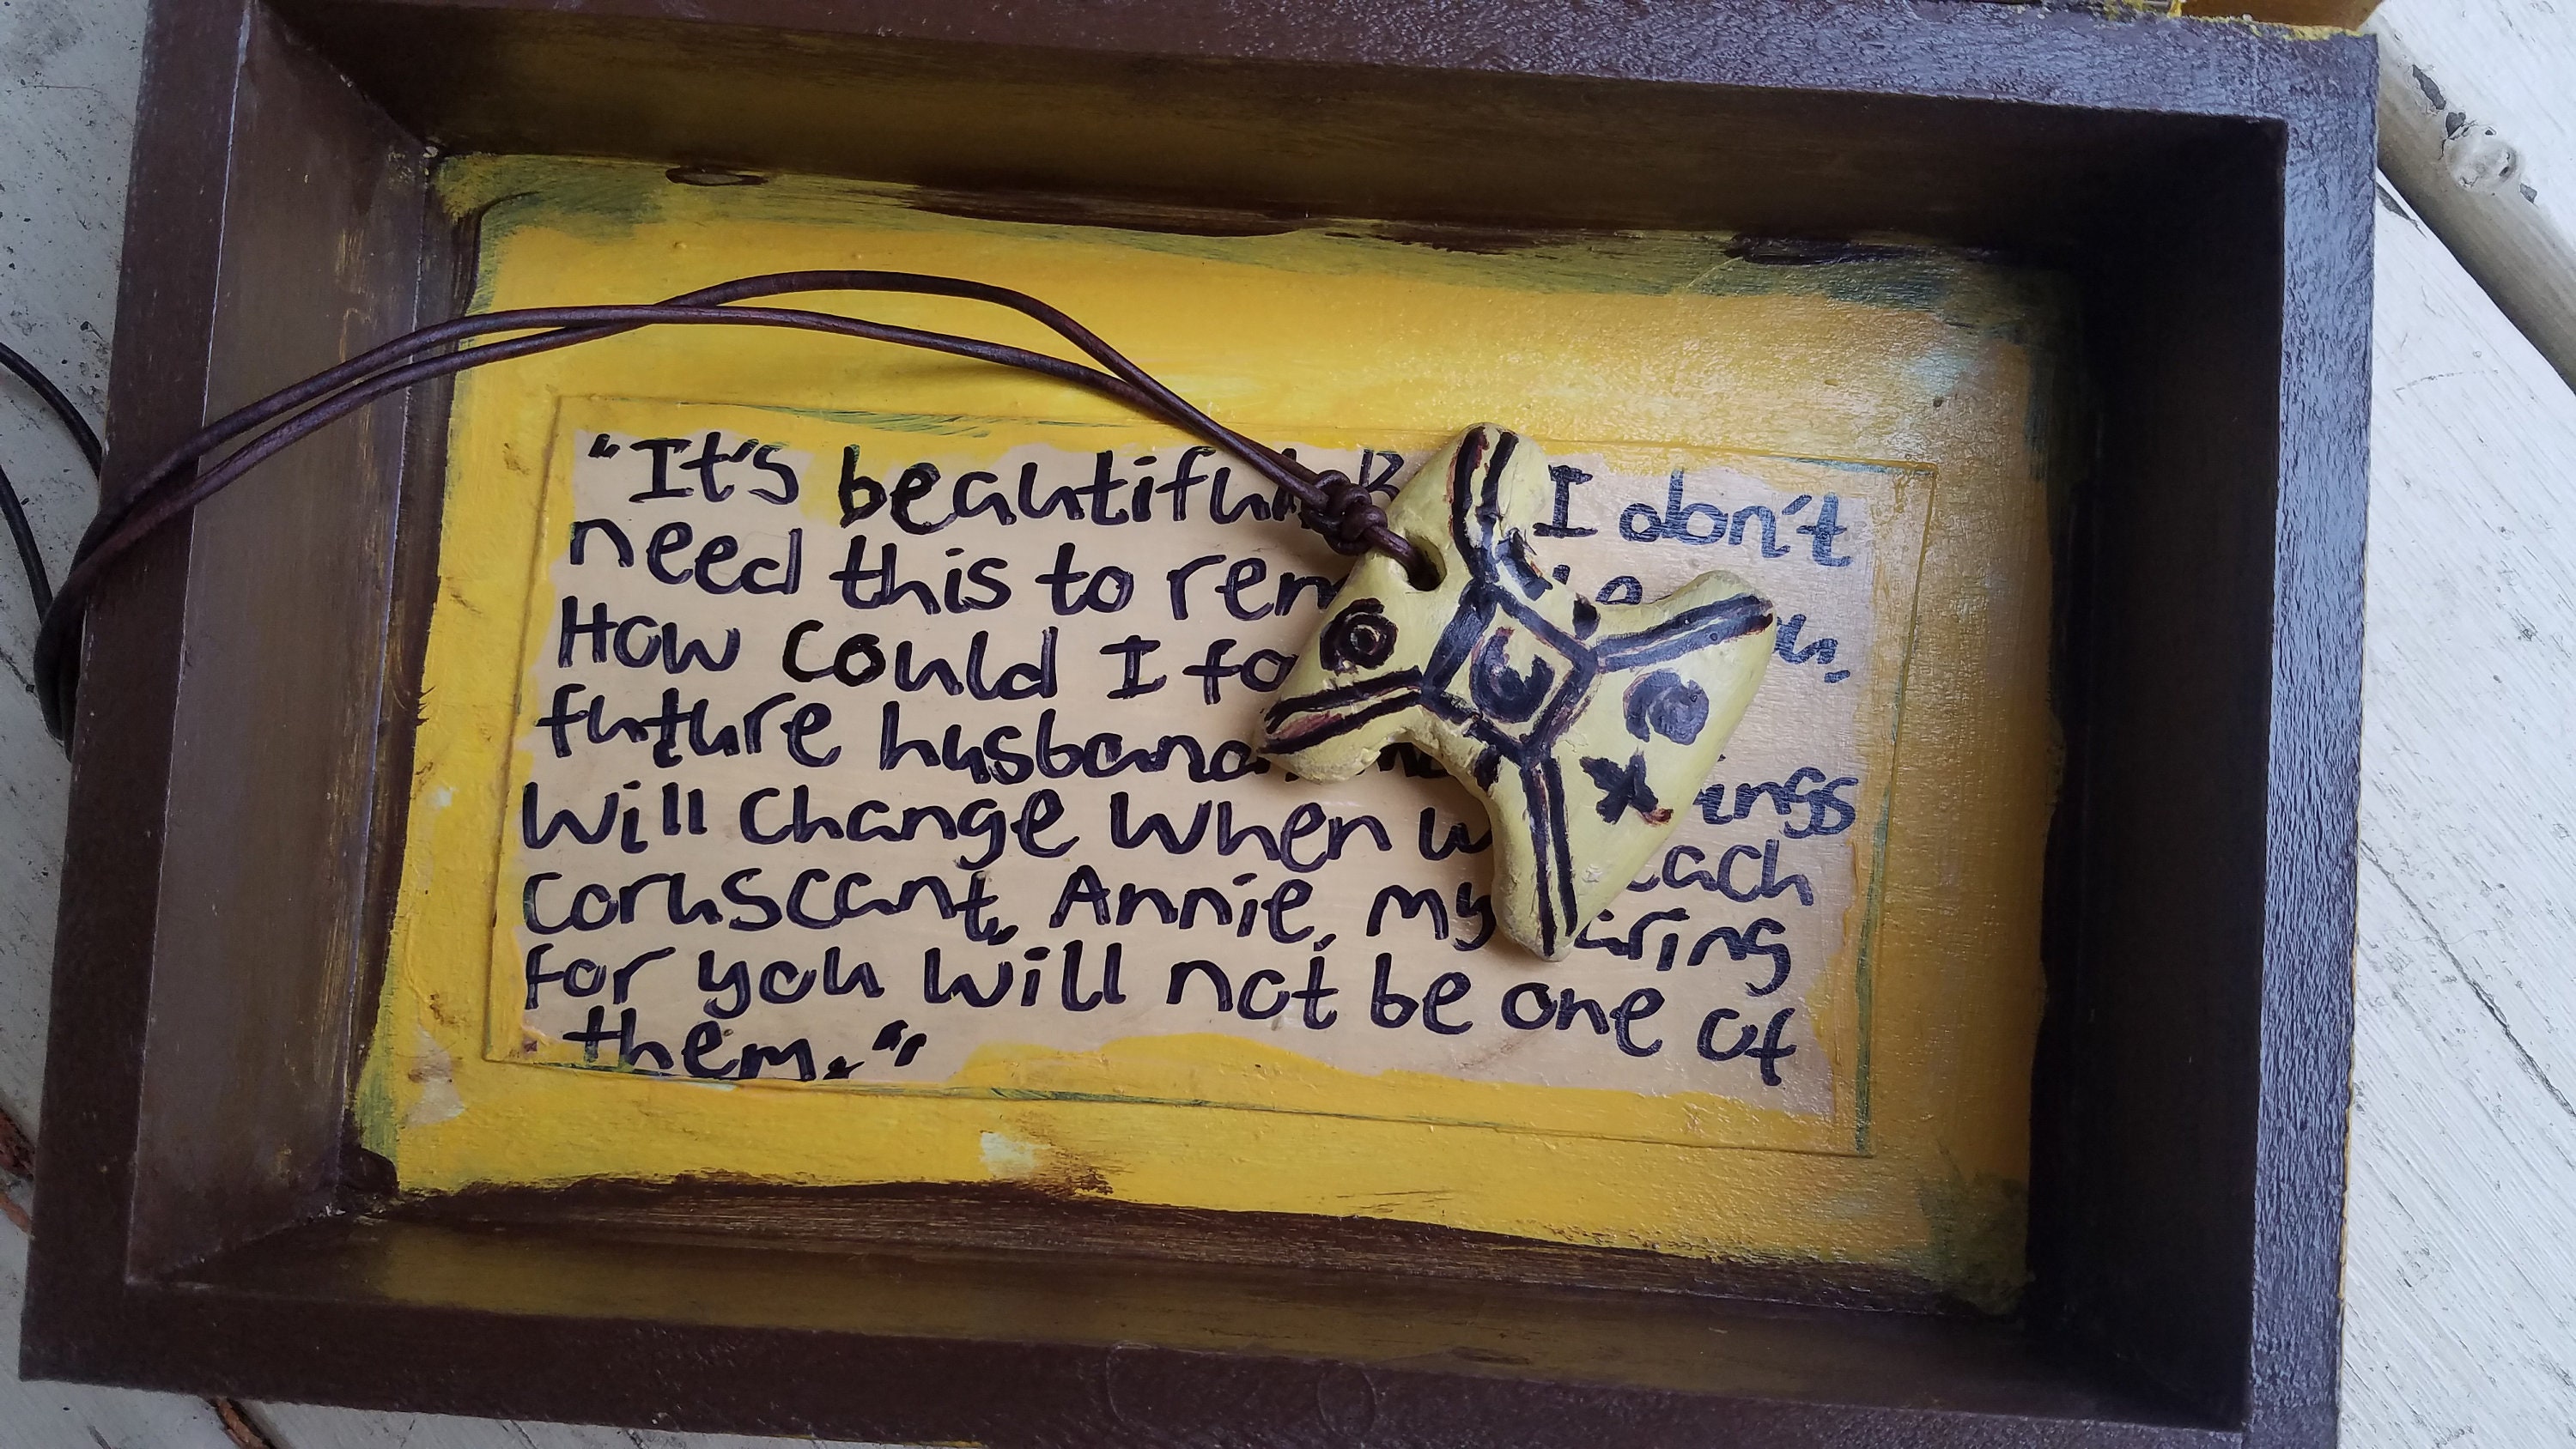 "It's beautiful. I don't
need this to
How could I
future husband
Will change when
coruscant, Annie, my
for you will not be one of
them."